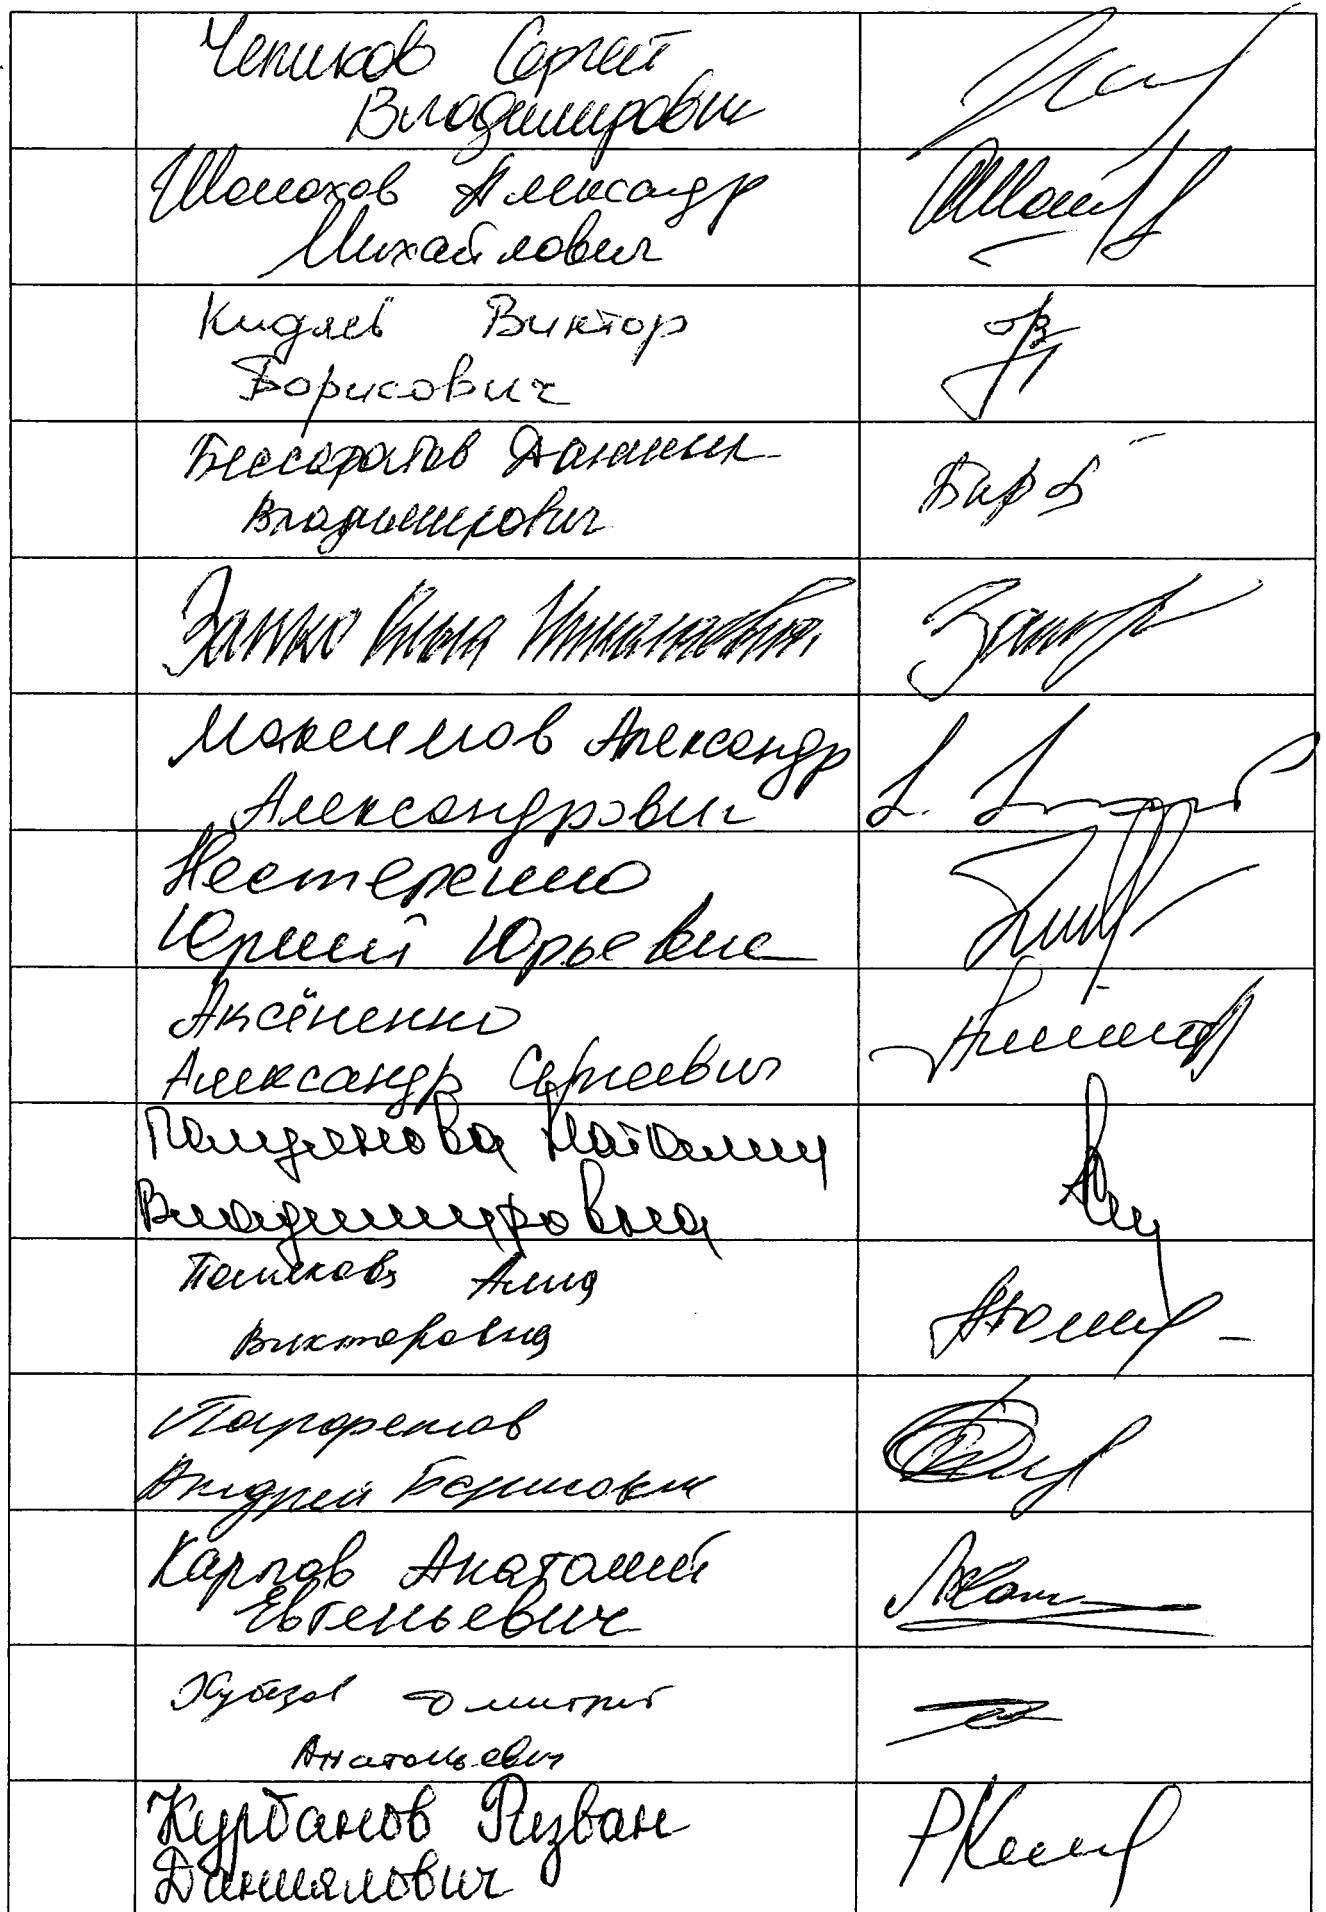 Чепиков Сергей
Владимирович
Шолохов Александр
Михайлович
Кидяев Виктор
Борисович
Бессарабов Даниил
Владимирович
Максимов Александр
Александрович
Нестеренко
Юрий Юрьевич
Аксёненко
Александр Сергеевич
Полуянова Наталия
Владимировна
Полякова Алла
Викторовна
Парфенов
Андрей Борисович
Карпов Анатолий
Евгеньевич
Хубезов Дмитрий
Анатольевич
Курбанов Ризван
Даниялович